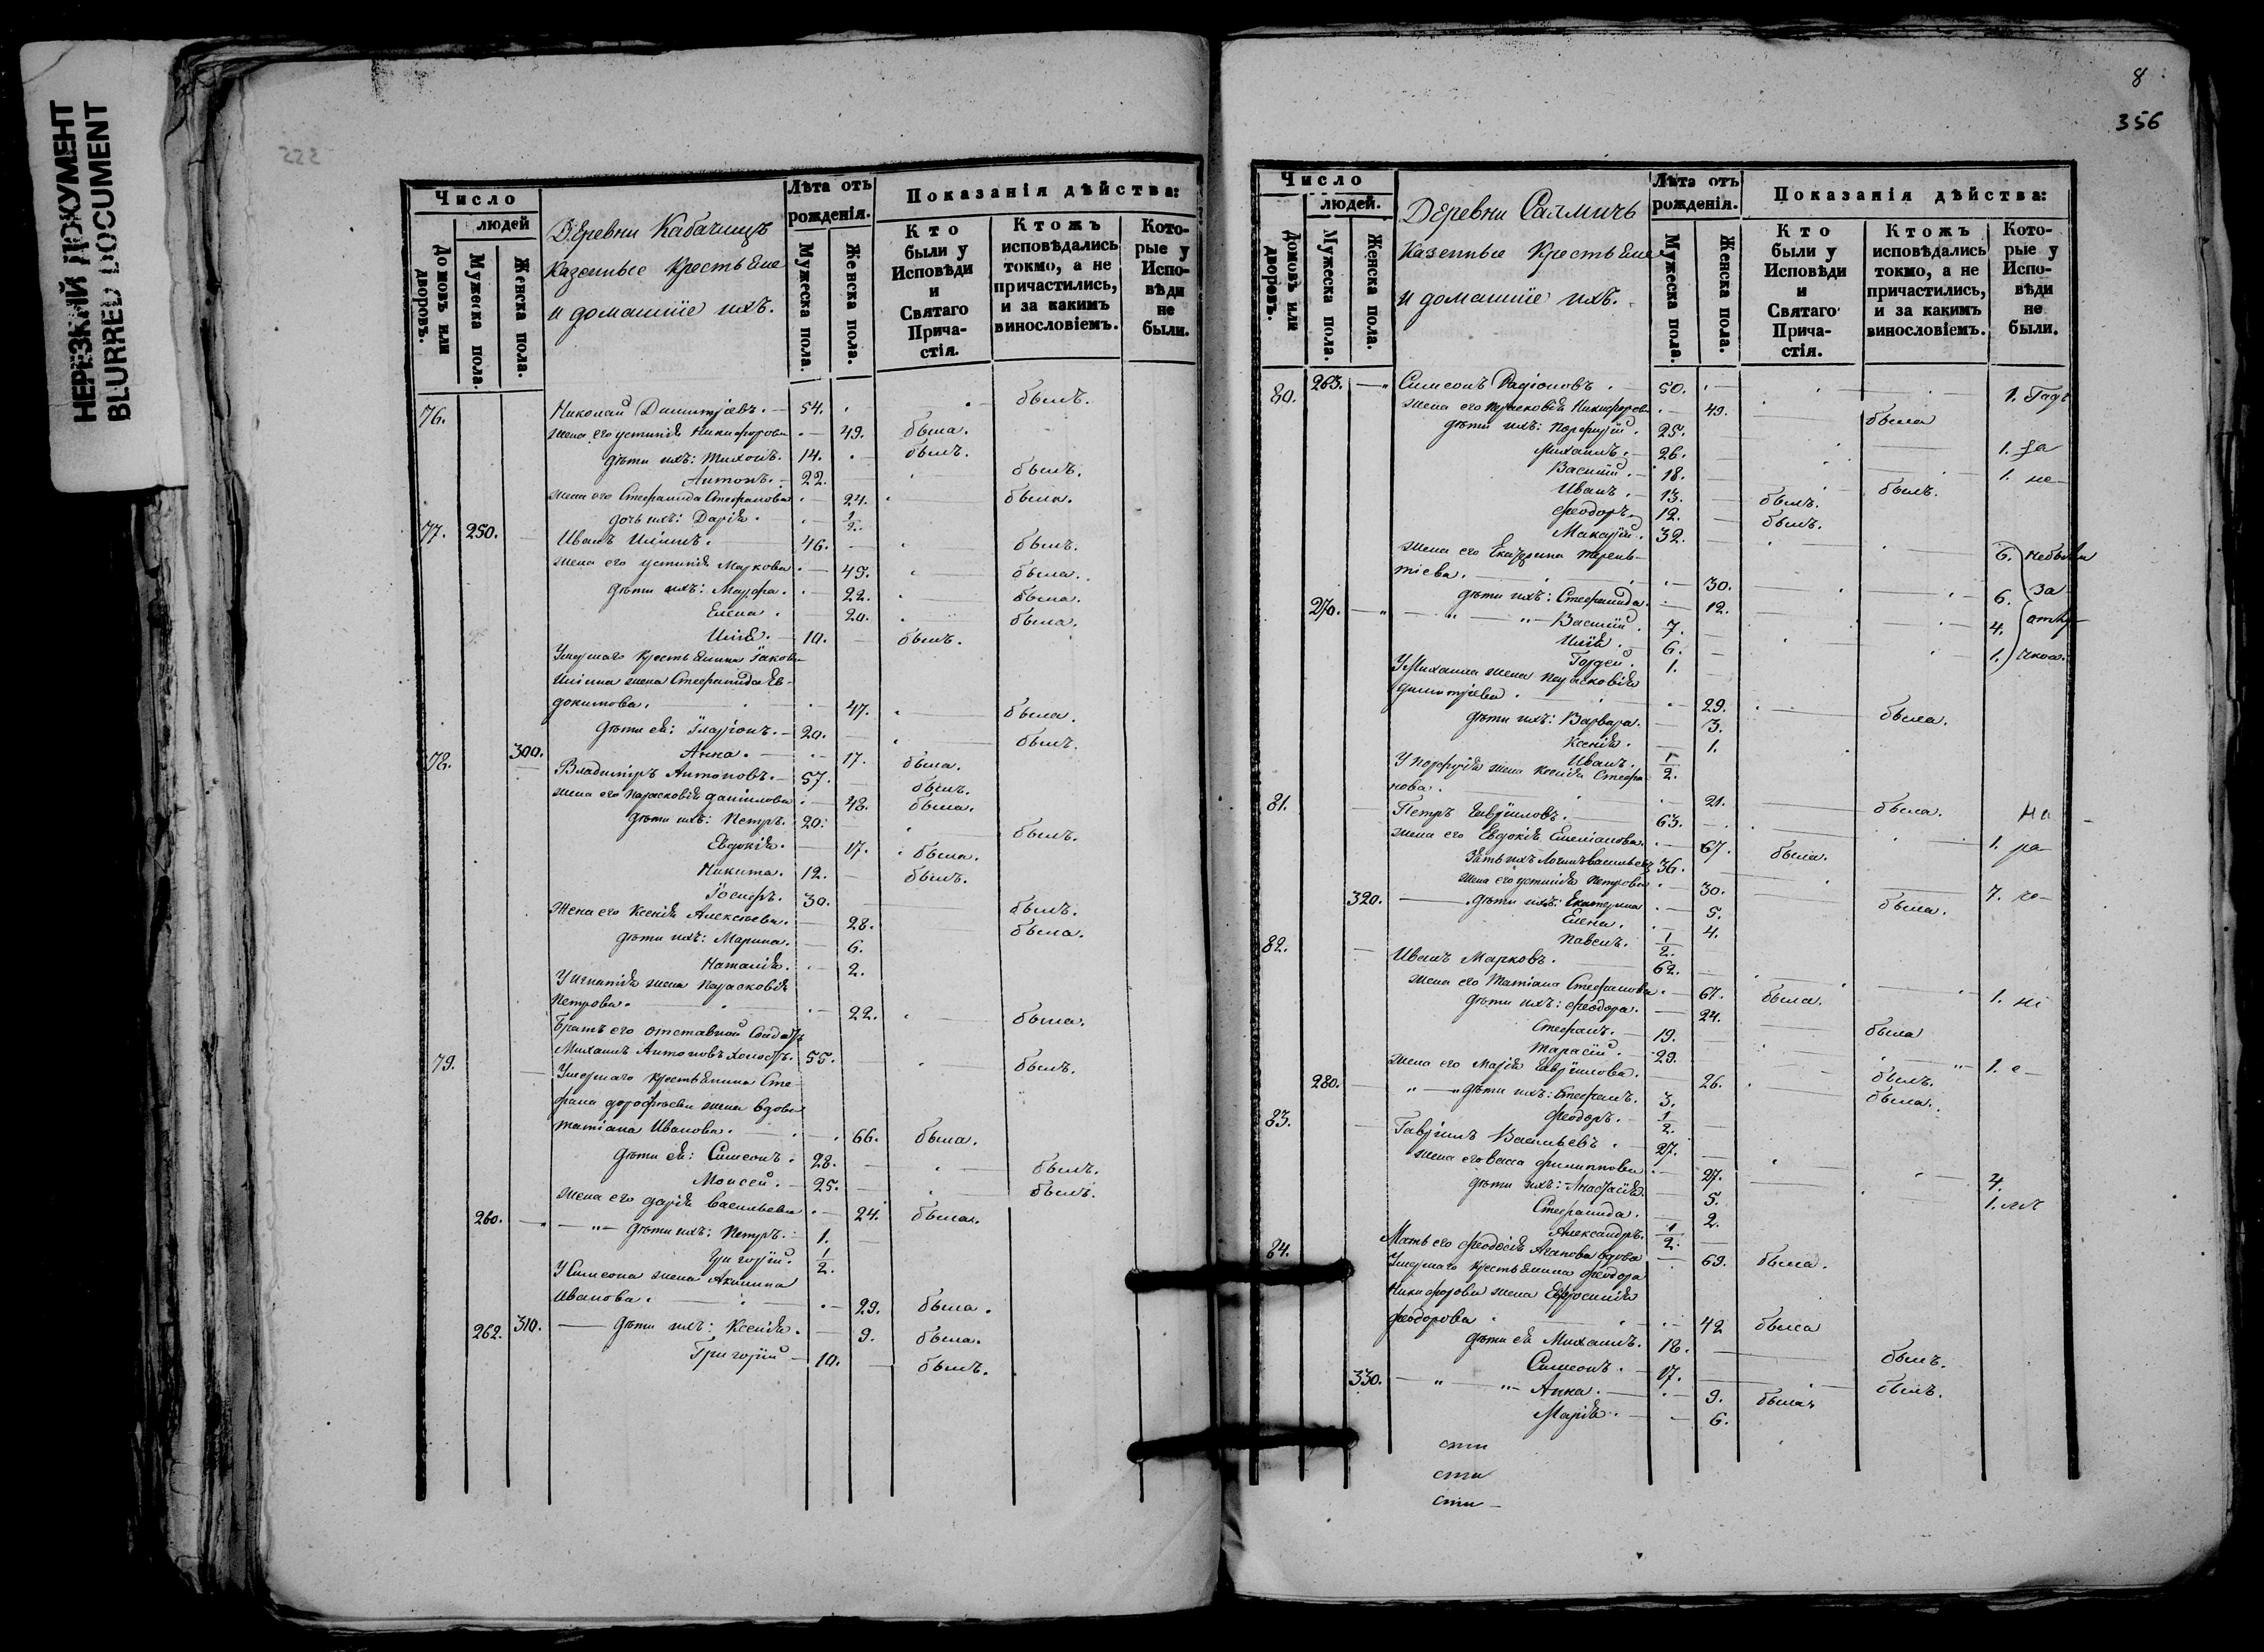 НЕРЕЗКИЙ ДОКУМЕНТ
BLURRED DOCUMENT
222
Число
людей
Домовъ или дворовъ.
Мужеска пола.
Женска пола.
Деревни Кабачищъ
Казенные Крестьяне
и домашніе ихъ.
Лѣта отъ рожденія.
Мужеска пола.
Женска пола.
Показанія дѣйства:
Кто были у Исповѣди и Святаго Причастія.
Ктожъ исповѣдались токмо, а не причастились, и за какимъ винословіемъ.
Которые у Исповѣди не были.
76. Николай Димитріевъ. 54. былъ.
жена его устинія Никифорова 49. была.
дѣти ихъ: Тихонъ. 14. былъ.
Антонъ. 22. былъ.
жена его Стефанида Стефанова 24. была.
дочь ихъ: Дарія. 1/2.
77. 250. Иванъ Илiинъ. 46. былъ.
жена его устинія Маркова 45. была.
дѣти ихъ: Марфа. 22. была.
Елена. 20. была.
Илія. 10. былъ.
Умершаго крестьянина Іакова
Иліина жена Стефанида Ев-
докимова. 47. была.
дѣти ея: Іларіонъ. 20. былъ.
300. Анна. 17. была.
78. Владиміръ Антоновъ. 57. былъ.
жена его Парасковія даніилова 48. была.
дѣти ихъ: Петръ. 20. былъ.
Евдокія. 17. была.
Никита. 12. былъ.
Іосифъ. 30. былъ.
Жена его Ксенія Алексѣева. 28. была.
дѣти ихъ: Марина. 6.
Наталія. 2.
У Игнатія жена Парасковія
Петрова. 22. была.
Братъ его отставной Солдатъ
Михаилъ Антоновъ холостъ. 55. былъ.
79. Умершаго крестьянина Сте-
фана дорофѣева жена вдова
татіана Иванова. 66. была.
дѣти ея: Симеонъ. 28. былъ.
Моисей. 25. былъ.
жена его дарія васильева 24. была.
260. дѣти ихъ: Петръ. 1.
Григорій. 1/2.
У Симеона жена Акилина
Иванова. 29. была.
262. 310. дѣти ихъ: Ксенія. 9. была.
Григорій 10. былъ.
8
356
Число
людей.
Домовъ или дворовъ.
Мужеска пола.
Женска пола.
Деревни Салмичъ
Казенные Крестьяне
и домашніе ихъ.
Лѣта отъ рожденія.
Мужеска пола.
Женска пола.
Показанія дѣйства:
Кто были у Исповѣди и Святаго Причастія.
Ктожъ исповѣдались токмо, а не причастились, и за какимъ винословіемъ.
Которые у Исповѣди не были.
80. 263. Симеонъ Радіоновъ. 50. 1.
жена его Парасковія Никифорова 49. была
дѣти ихъ: Порфирій. 25.
Михаилъ. 26. 1. за
Василій. 18. 1. не
Иванъ. 13. былъ. былъ.
Феодоръ. 12. былъ.
Макарій. 32.
жена его Екатерина терень- 6. небытія
тіева. 30. за
дѣти ихъ: Стефанида. 12. 6.
270. Василій. 7. 4.
Илія. 6.
Гордей. 1. 1.
У Михаила жена Парасковія
димитріева. 29. была.
дѣти ихъ: Варвара. 3.
Ксенія. 1.
Иванъ. 1/2.
У Порфирія жена Ксенія Стефа-
нова. 21. была.
81. Петръ Гавріиловъ. 63. 1.
жена его Евдокія Емеліанова. 67. была.
Зять ихъ 36. 7.
жена его устинія Петрова 30. была.
320. дѣти ихъ: Екатерина 5.
Елена. 4.
Павелъ. 1/2.
82. Иванъ Марковъ. 62. 1.
жена его Татіана Стефанова 67. была.
дѣти ихъ: Феодора. 24. была
Стефанъ. 19.
Тарасій. 29. былъ. 1.
жена его Марія Гавріилова. 26. была.
280. дѣти ихъ: Стефанъ. 3.
Феодоръ. 1/2.
83. Гавріилъ Васильевъ. 27.
жена его васса филиппова 27. 4.
дѣти ихъ: Анастасія. 5. 1.
Стефанида. 2.
Александръ. 1/2.
Мать его Феодосія Агапова вдова 69. была.
84. Умершаго крестьянина Феодора
Никифорова жена Ефросинія
Феодорова 42 была
дѣти ея Михаилъ. 18. былъ.
Симеонъ. 17. былъ.
330. Анна. 9. была
Марія. 6.